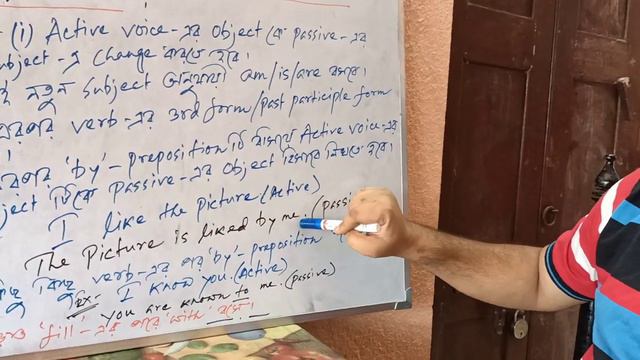 (i) Active voice-এর object কে passive-এর
subject-এ change করতে হবে।
নতুন subject অনুযায়ী am/is/are বসবে।
এরপর verb-এর 3rd form/past participle form
'by'-preposition টি বসিয়ে Active voice-এর
টিকে passive-এর object হিসাবে লিখতে হবে।
I like the picture (Active)
The picture is liked by me. (pass
কিছু verb-এর পর 'by'-preposition
Ex:- I know you. (Active)
you are known to me. (passive)
'fill'-এর পরে 'with' বসে।